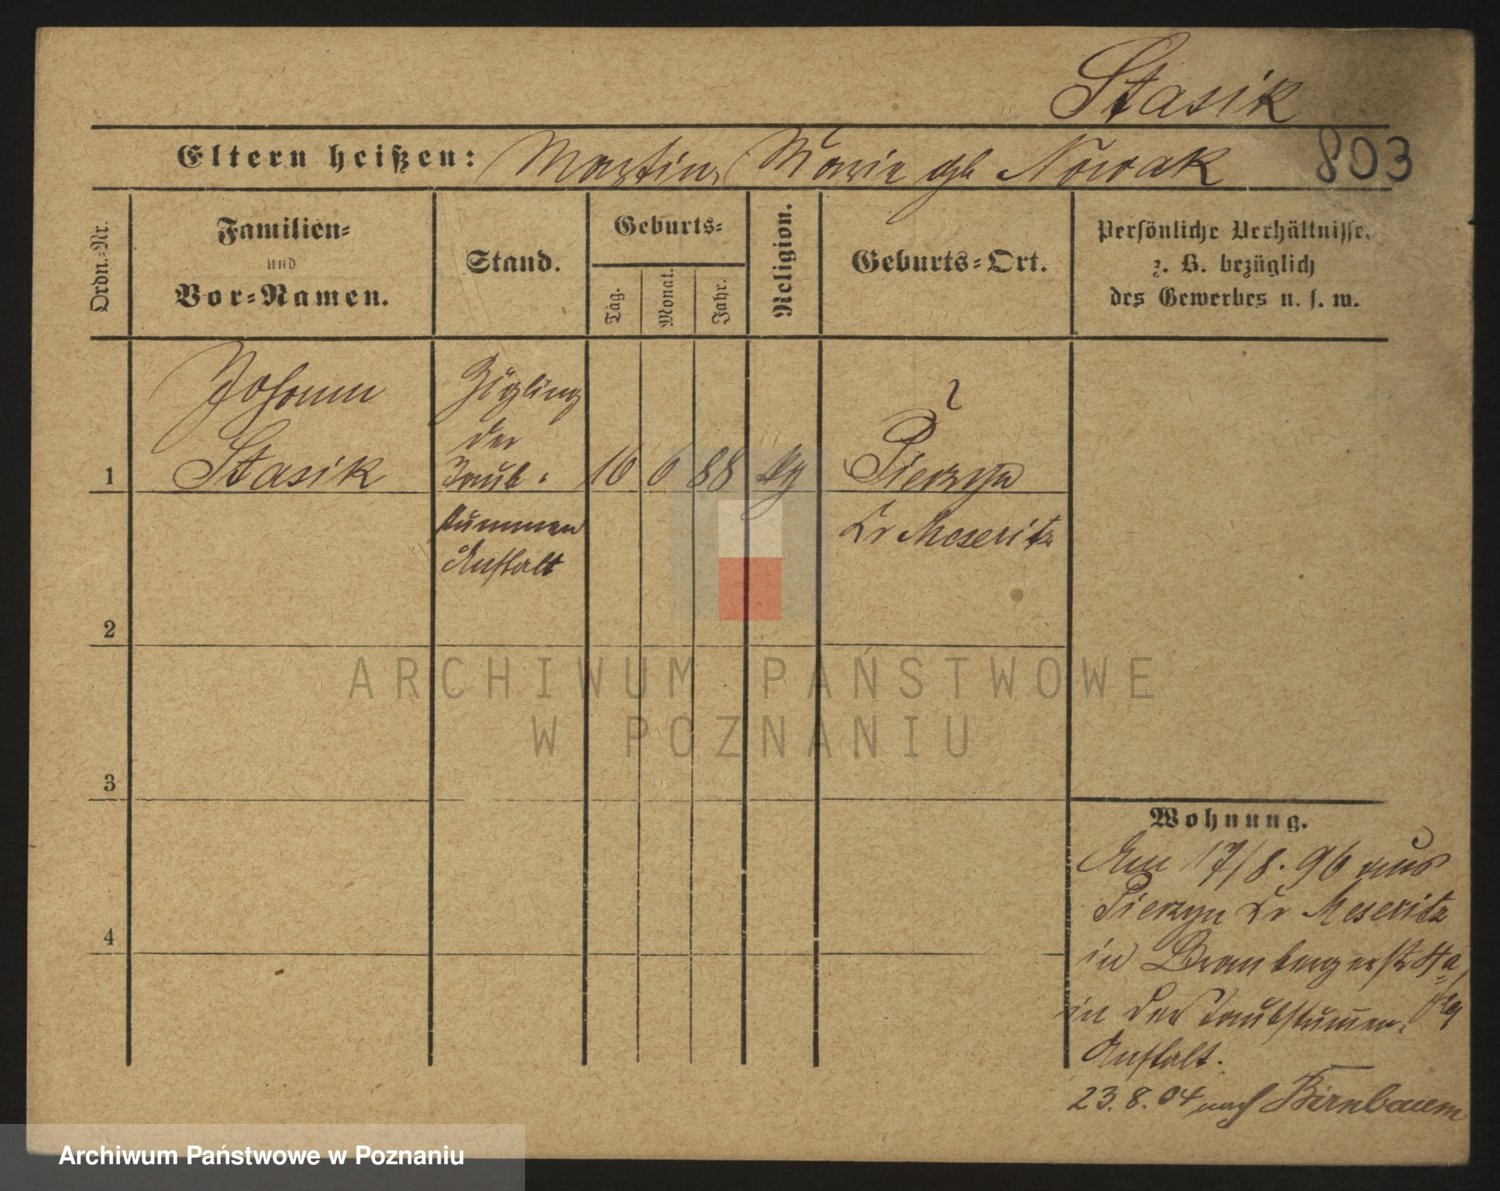 Stasik
Eltern heißen: Martin, Marie gb Nowak 803
Ordn.-Nr.
Familien-
und
Vor-Namen.
Stand.
Geburts-
Tag.
Monat.
Jahr.
Religion.
Geburts-Ort.
Persönliche Verhältnisse,
z. B. bezüglich
des Gewerbes u. s. w.
1
Johann
Stasik
Zögling
der
Taub-
stummen
Anstalt
16 6 88
Pieczyn
Kr Meseritz
2
3
4
Wohnung.
Am 17/8. 96 aus
Pieczyn Kr Meseritz
in
in der Taubstummen-
Anstalt.
23.8.04 nach Birnbaum
ARCHIWUM PAŃSTWOWE
W POZNANIU
Archiwum Państwowe w Poznaniu